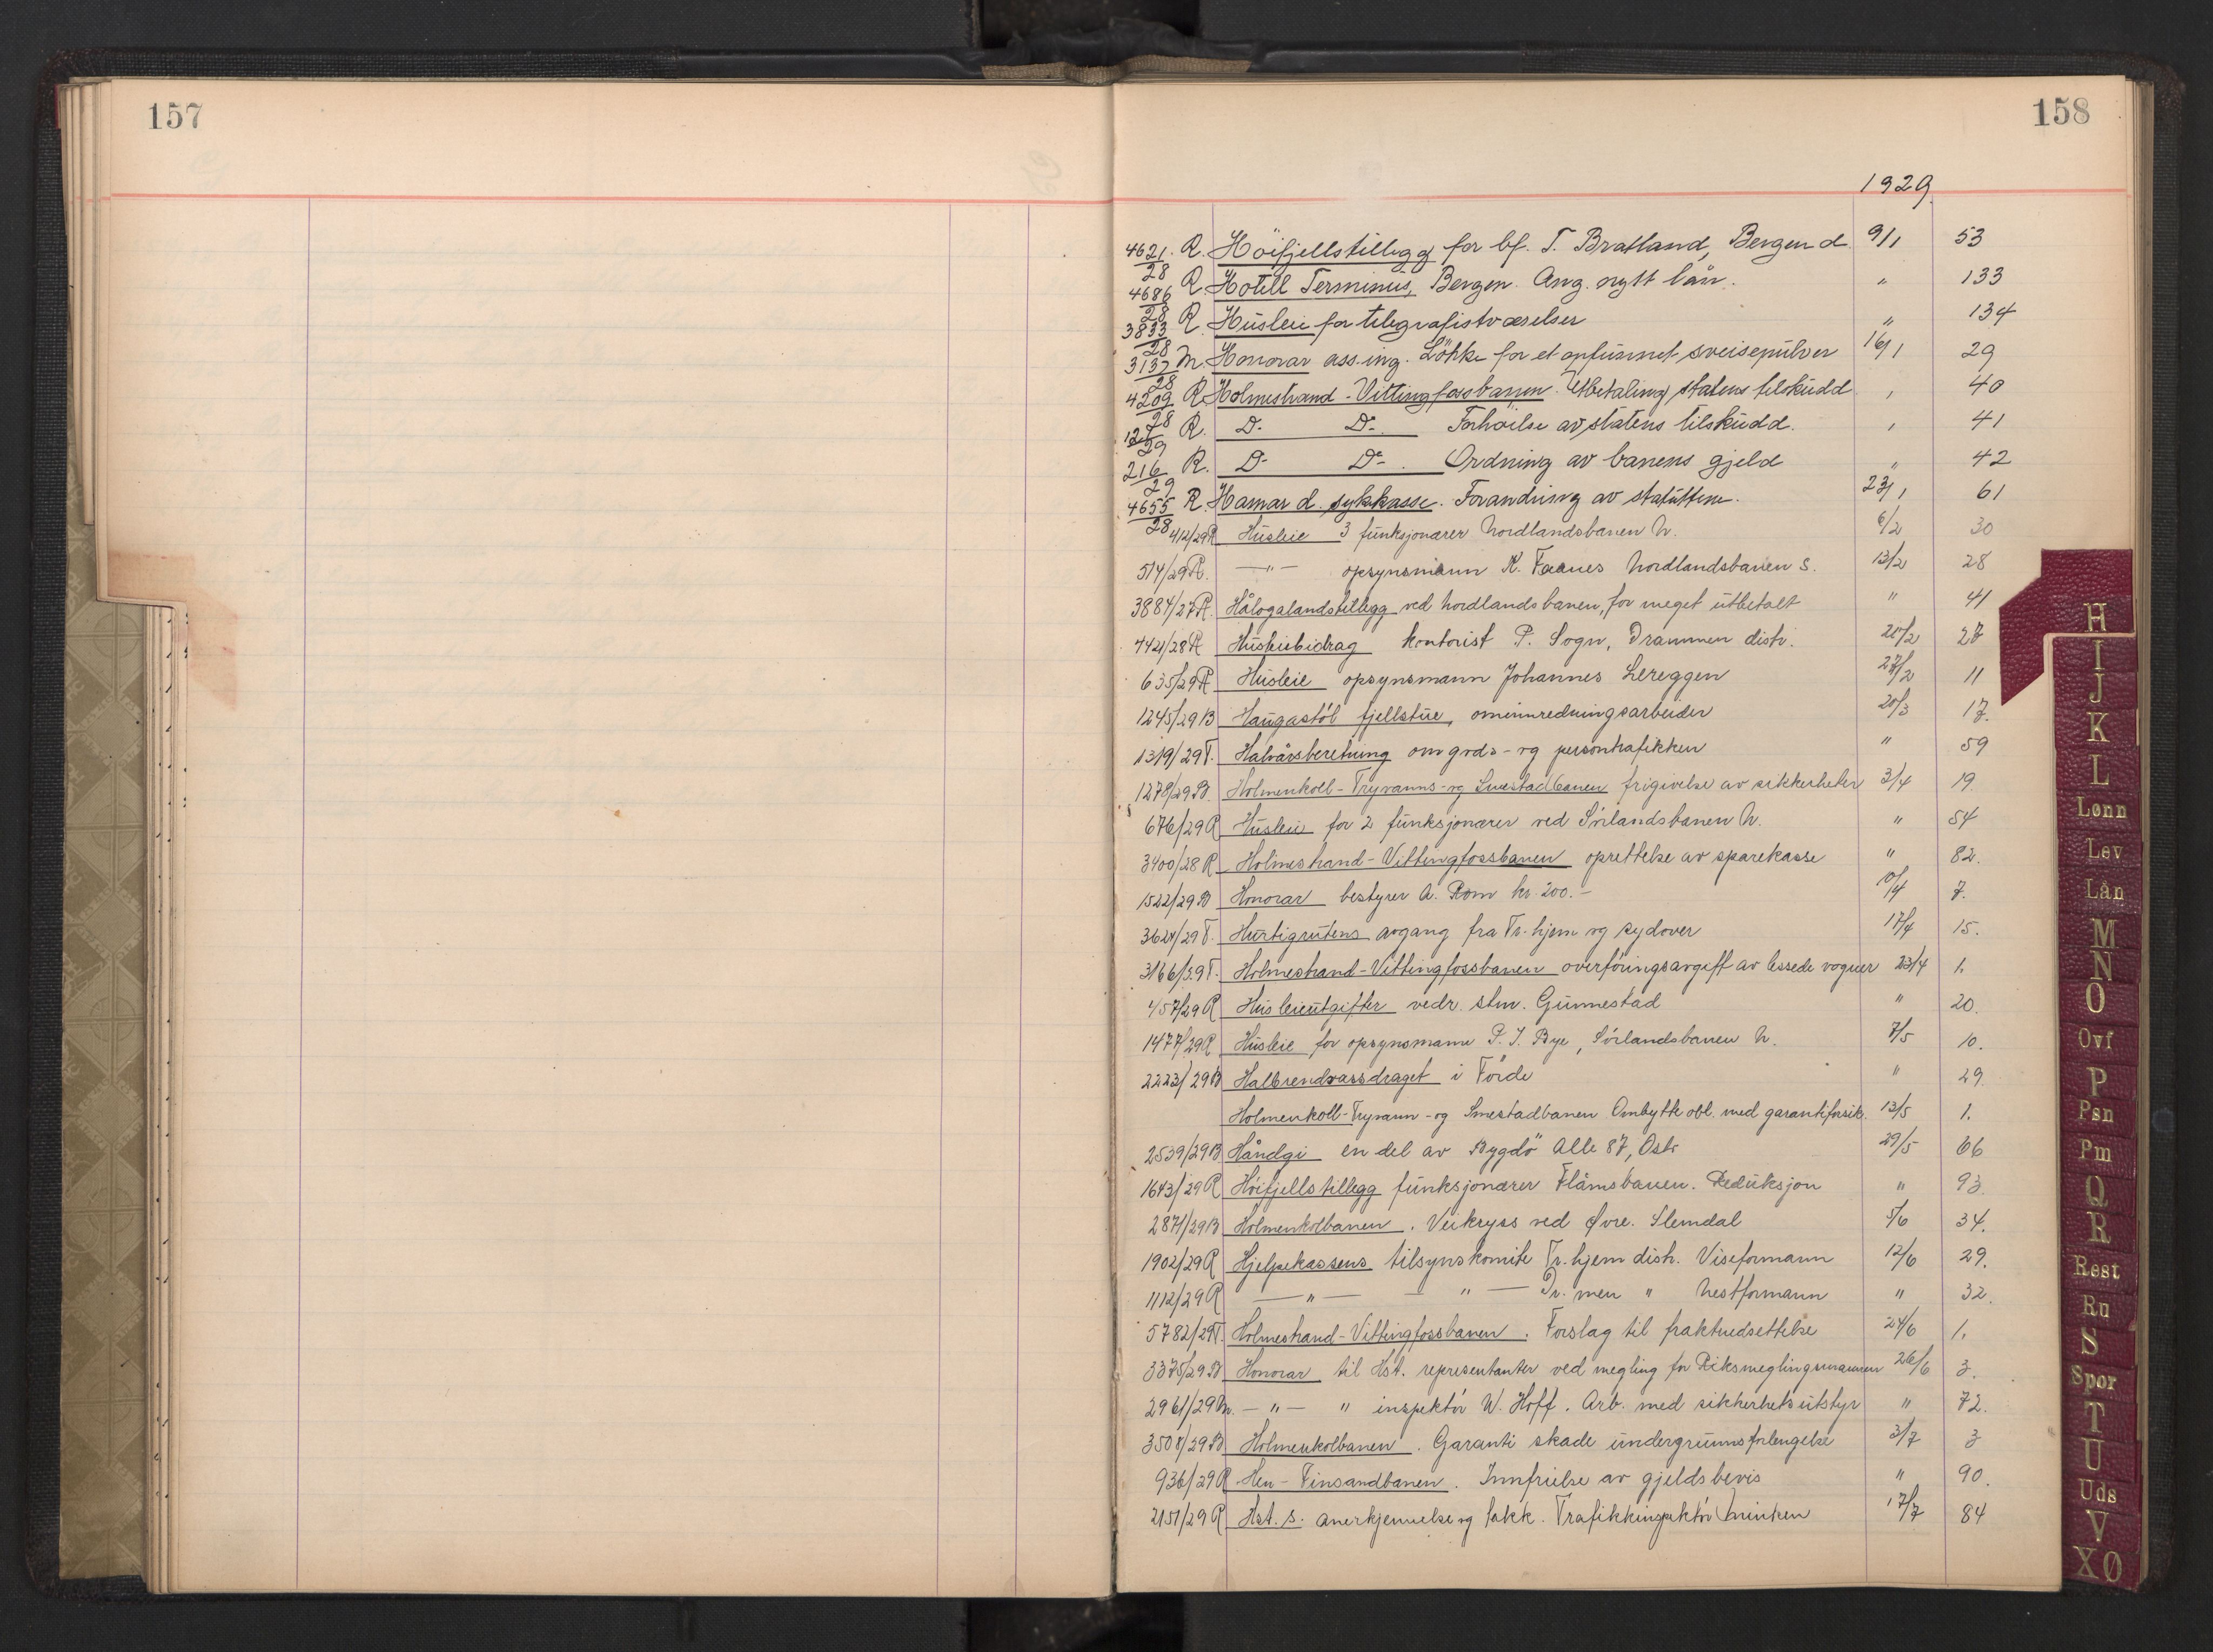 157
158
1929.
4621/28 R. Höifjellstillegg for bf. T. Bratland, Bergen d. 9/1 53
4686/28 R. Hotell Terminus, Bergen. Ang. nytt lån. " 133
3833/28 R. Husleie for telegrafistværelser " 134
3137/28 M. Honorar ass.ing. Löhke for et opfunnet sveisepulver 16/1 29
4209/28 R Holmestrand-Vittingfossbanen. Utbetaling statens tilskudd " 40
127/29 R. D- D-. Forhöielse av statens tilskudd. " 41
216/29 R. D- D-. Ordning av banens gjeld " 42
4655/28 R. Hamar d. sykekasse. Forandring av statuttene. 23/1 61
412/29 R Husleie 3 funksjonærer Nordlandsbanen N. 6/2 30
514/29 R. —"— opsynsmann K. Faanes Nordlandsbanen S. 13/2 28
3884/27 R. Hålogalandstillegg ved Nordlandsbanen, for meget utbetalt " 41
4421/28 R Husleiebidrag kontorist P. Sogn, Drammen distr. 20/2 27
635/29 R Husleie opsynsmann Johannes Lereggen 27/2 11
1245/29 B Haugastöl fjellstue, ominnredningsarbeider 20/3 17.
1319/29 T. Halvårsberetning om gods- og persontrafikken " 59
1278/29 B. Holmenkoll-Tryvanns- og Smestadbanen frigivelse av sikkerheter 3/4 19.
676/29 R Husleie for 2 funksjonærer ved Sörlandsbanen N. " 54
3400/28 R Holmestrand-Vittingfossbanen oprettelse av sparekasse " 82.
1522/29 B Honorar bestyrer A. Rom kr. 200.- 10/4 7.
3624/29 T. Hurtigrutens avgang fra Tr.hjem og sydover 17/4 15.
3166/29 T. Holmestrand-Vittingfossbanen overföringsavgift av lessede vogner 23/4 1.
457/29 R Husleieutgifter vedr. stm. Gunnestad " 20.
1477/29 R Husleie for opsynsmann P. J. Bye, Sörlandsbanen N. 7/5 10.
2223/29 B Halbrendvassdraget i Förde " 29.
Holmenkoll-Tryvann- og Smestadbanen Ombytte obl. med garantiforsik. 13/5 1.
2539/29 B Håndgi en del av Bygdö Alle 87, Oslo 29/5 66
1643/29 R Höifjellstillegg funksjonærer Flåmsbanen. Reduksjon " 93.
2871/29 B Holmenkolbanen. Veikryss ved Øvre. Slemdal 5/6 34.
1902/29 R Hjelpekassens tilsynskomite Tr.hjem distr. Viseformann 12/6 29.
1112/29 R —"— —"— Dr.men " Nestformann " 32.
5782/29 T. Holmestrand-Vittingfossbanen. Forslag til fraktnedsettelse 24/6 1.
3375/29 B Honorar til Hst. representanter ved megling for Riksmeglingsmannen 26/6 3.
2961/29 M. —"— " inspektör W. Hoff. Arb. med sikkerhetsutstyr " 72.
3508/29 B Holmenkolbanen. Garanti skade undergrunnsforlengelse 3/7 3
936/29 R Hen-Finsandbanen. Innfrielse av gjeldsbevis " 90.
2151/29 R Hst. s. anerkjennelse og takk. Trafikkinspektör 17/7 84
H
I
J
K
L
Lønn
Lev
Lån
M
N
O
Ovf
P
Psn
Pm
Q
R
Rest
Ru
S
Spor
T
U
Uds
V
XØ